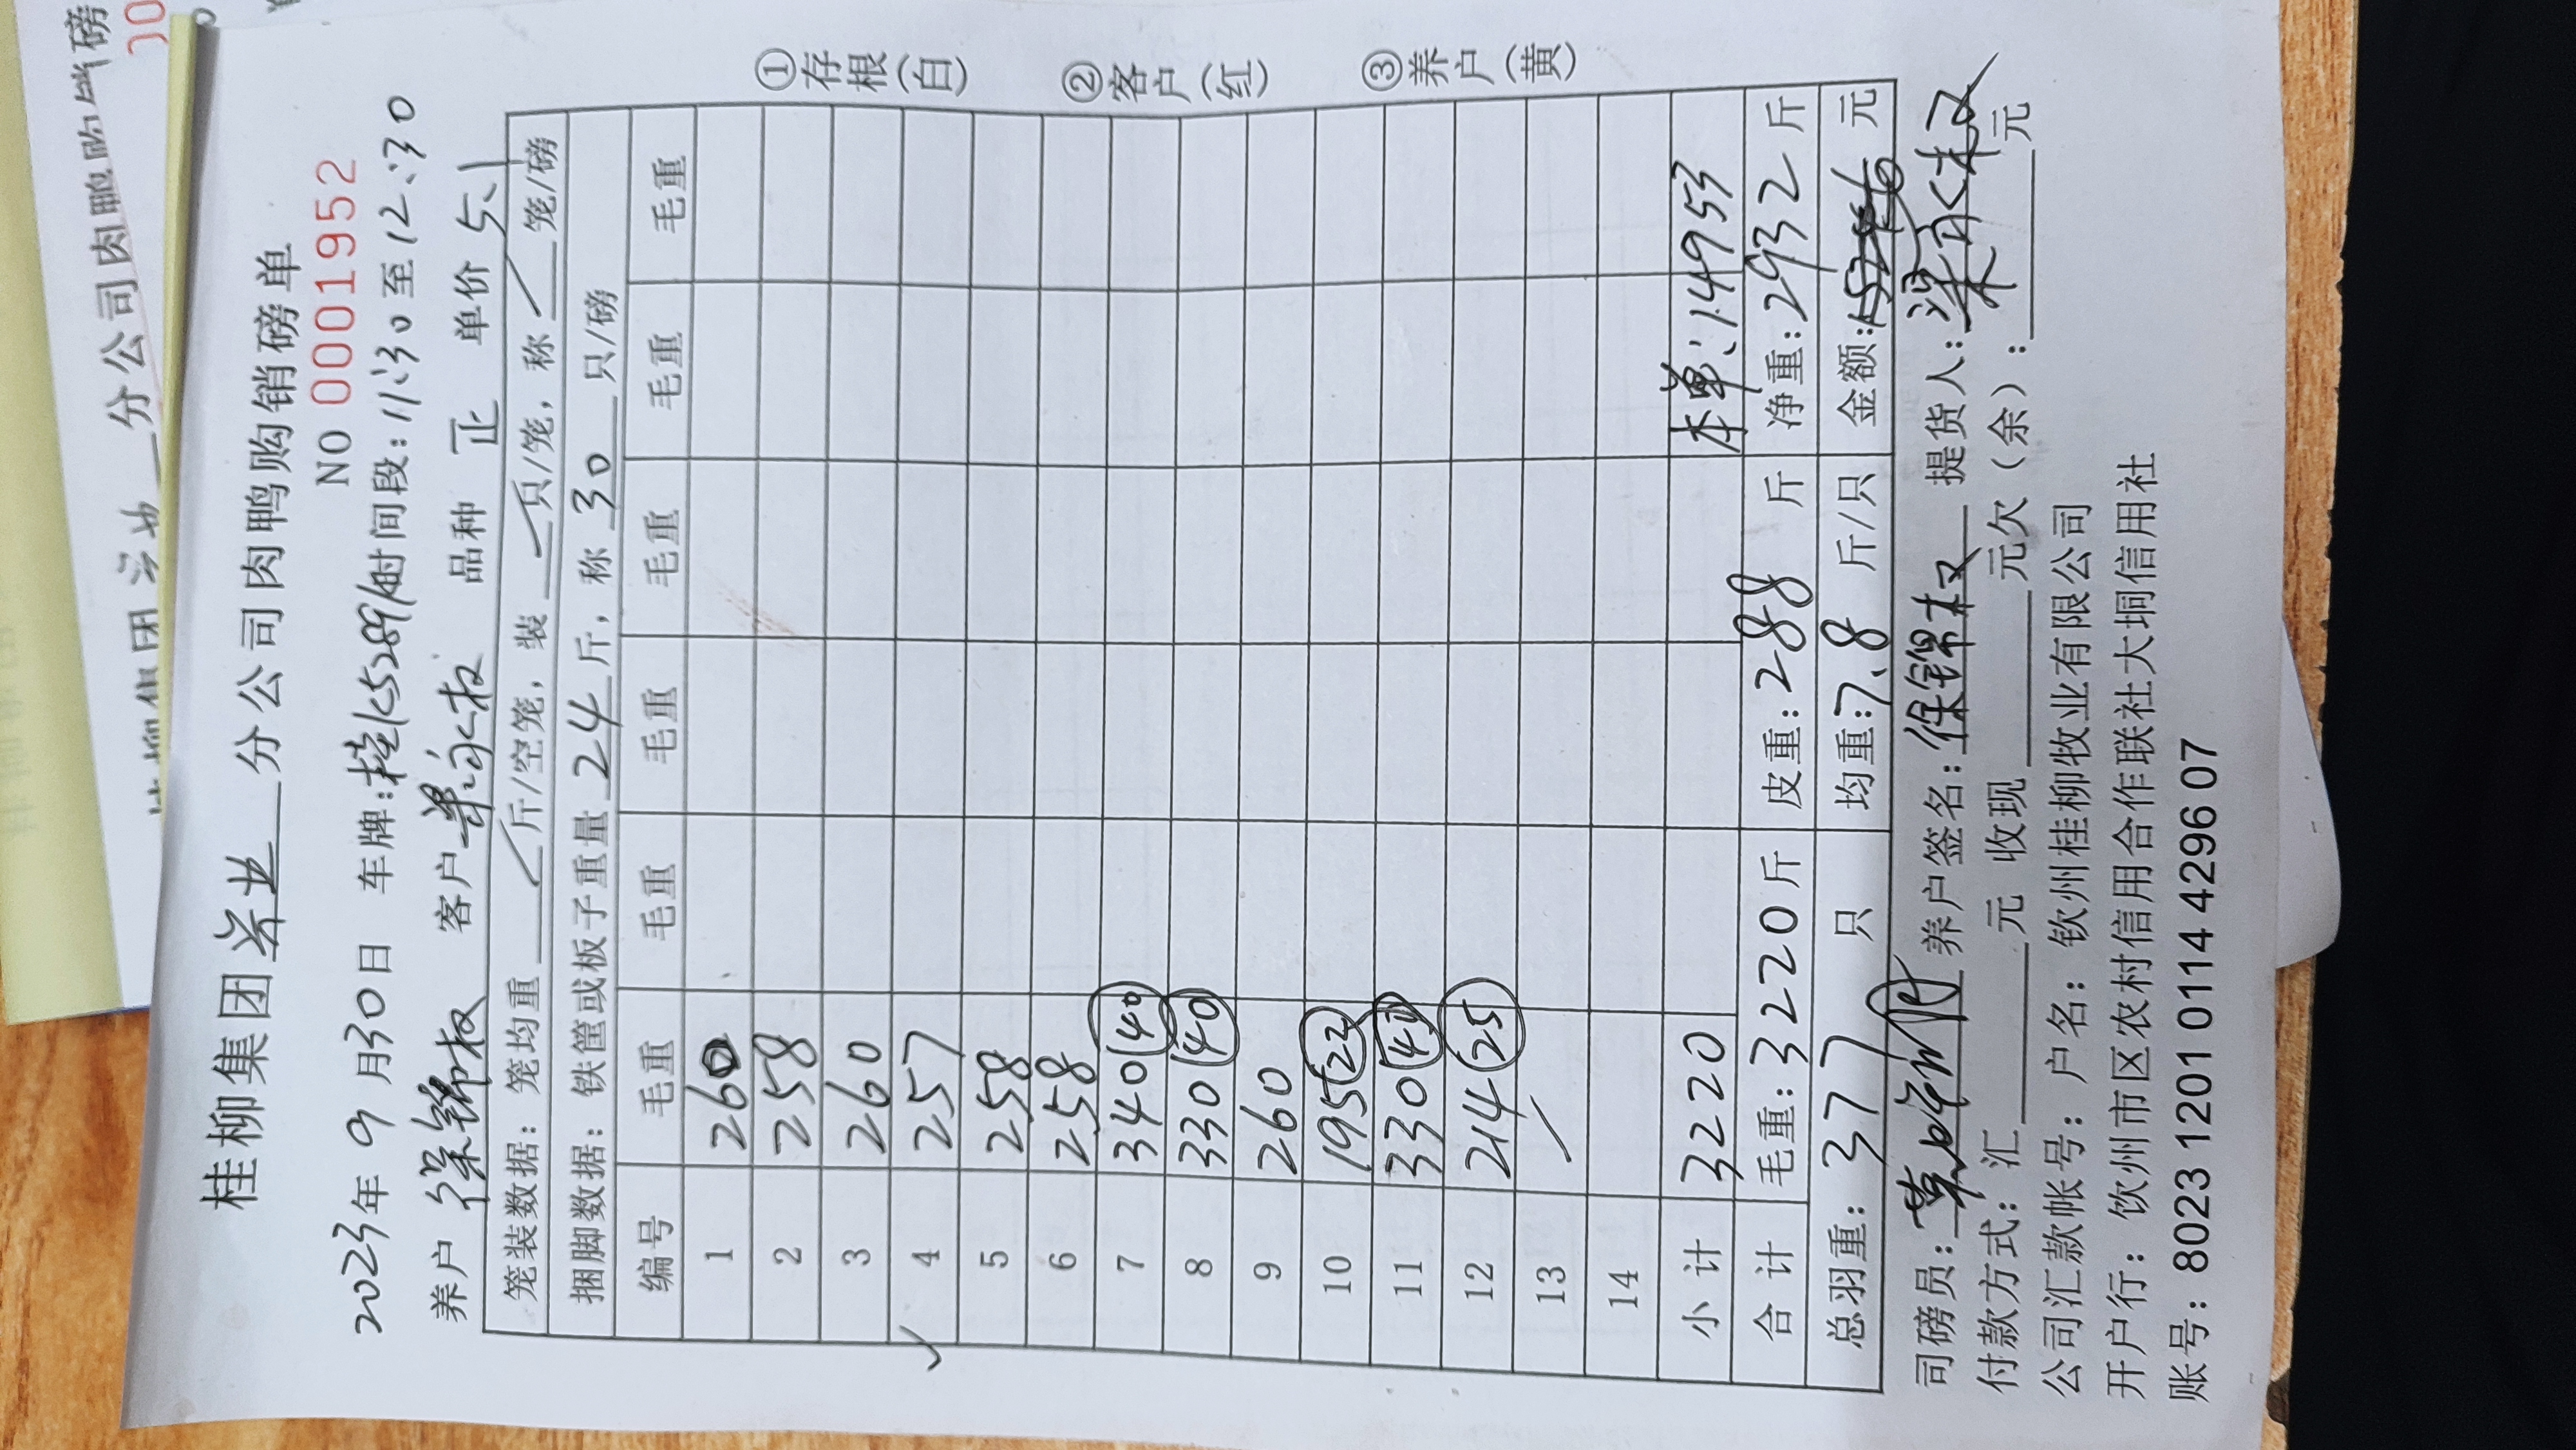 桂柳集团 分公司肉鸭购销磅单
NO 0001952
2023年 9 月30日 车牌:桂K52891 时间段:11:30至12:30
养户 客户 品种 正 单价 5.1
笼装数据: 笼均重 斤/空笼, 装 只/笼, 称 笼/磅
捆脚数据: 铁筐或板子重量 24 斤, 称 30 只/磅
编号 毛重 毛重 毛重 毛重 毛重 毛重
1 260
2 258
3 260
4 257
5 258
6 258
7 340(40)
8 330(40)
9 260
10 195(22)
11 330(40)
12 214(25)
13
14
小计 3220 本单:14953
合计 毛重:3220斤 皮重:288 斤 净重:2932 斤
总羽重: 377 只 均重:7.8 斤/只 金额: 元
司磅员: 养户签名: 提货人:
付款方式: 汇 元 收现 元欠(余): 元
公司汇款帐号: 户名: 钦州桂柳牧业有限公司
开户行: 钦州市区农村信用合作联社大垌信用社
账号: 8023 1201 0114 4296 07
①存根(白)
②客户(红)
③养户(黄)
分公司肉鸭购销磅